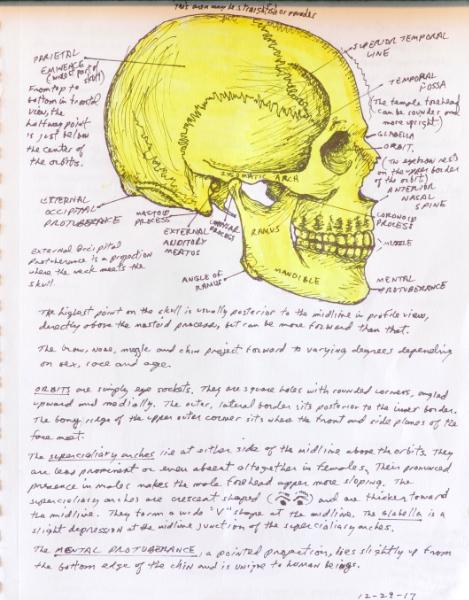 This area may be straighter or rounder
PARIETAL
EMINENCE
(widest point of skull)
From top to
bottom in frontal
view, the
halfway point
is just below
the center of
the orbits.
SUPERIOR TEMPORAL
LINE
TEMPORAL
FOSSA
(The female forehead
can be rounder and
more upright)
GLABELLA
ORBIT
(The eyebrow rests
on the upper border
of the orbit)
ANTERIOR
NASAL
SPINE
CORONOID
PROCESS
MUZZLE
MENTAL
PROTUBERANCE
ZYGOMATIC ARCH
EXTERNAL
OCCIPITAL
PROTUBERANCE
MASTOID
PROCESS
EXTERNAL
AUDITORY
MEATUS
CONDYLAR
PROCESS
RAMUS
ANGLE OF
RAMUS
MANDIBLE
External Occipital
Protuberance is a projection
where the neck meets the
skull.
The highest point on the skull is usually posterior to the midline in profile view,
directly above the mastoid process, but can be more forward than that.
The brow, nose, muzzle and chin project forward to varying degrees depending
on sex, race and age.
ORBITS are simply eye sockets. They are square holes with rounded corners, angled
upward and medially. The outer, lateral border sits posterior to the inner border.
The bony ridge of the upper outer corner sits where the front and side planes of the
face meet.
The superciliary arches lie at either side of the midline above the orbits. They
are less prominent or even absent altogether in females. Their pronounced
presence in males makes the male forehead appear more sloping. The
superciliary arches are crescent shaped ( ) and are thicker toward
the midline. They form a wide "V" shape at the midline. The Glabella is a
slight depression at the midline junction of the superciliary arches.
The MENTAL PROTUBERANCE, a pointed projection, lies slightly up from
the bottom edge of the chin and is unique to human beings.
12-29-17